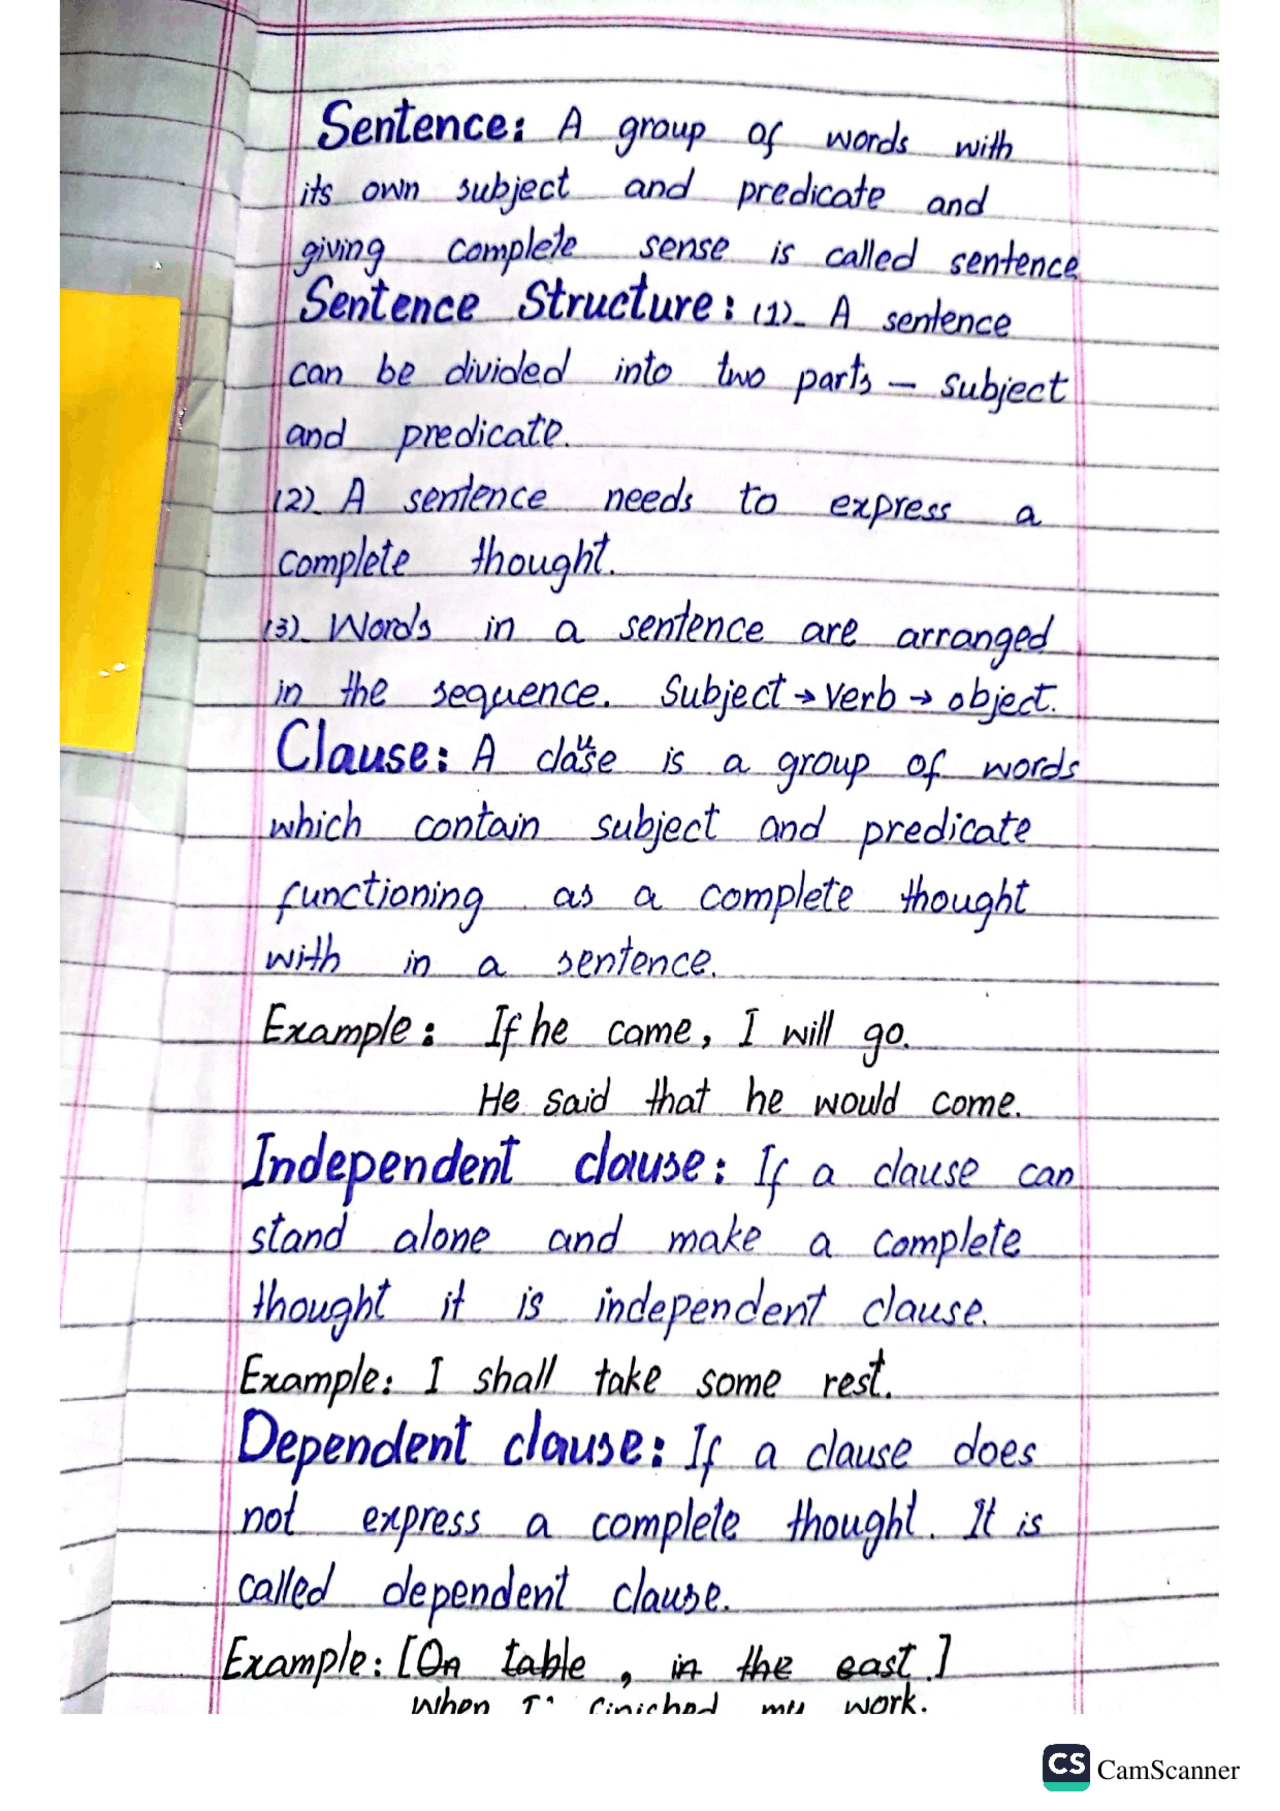 Sentence: A group of words with
its own subject and predicate and
giving complete sense is called sentence
Sentence Structure: (1). A sentence
can be divided into two parts – subject
and predicate.
(2). A sentence needs to express a
complete thought.
(3). Words in a sentence are arranged
in the sequence. Subject → verb → object.
Clause: A clause is a group of words
which contain subject and predicate
functioning as a complete thought
with in a sentence.
Example: If he came, I will go.
He said that he would come.
Independent clause: If a clause can
stand alone and make a complete
thought it is independent clause.
Example: I shall take some rest.
Dependent clause: If a clause does
not express a complete thought. It is
called dependent clause.
Example: [On table, in the east.]
When I finished my work.
CS CamScanner